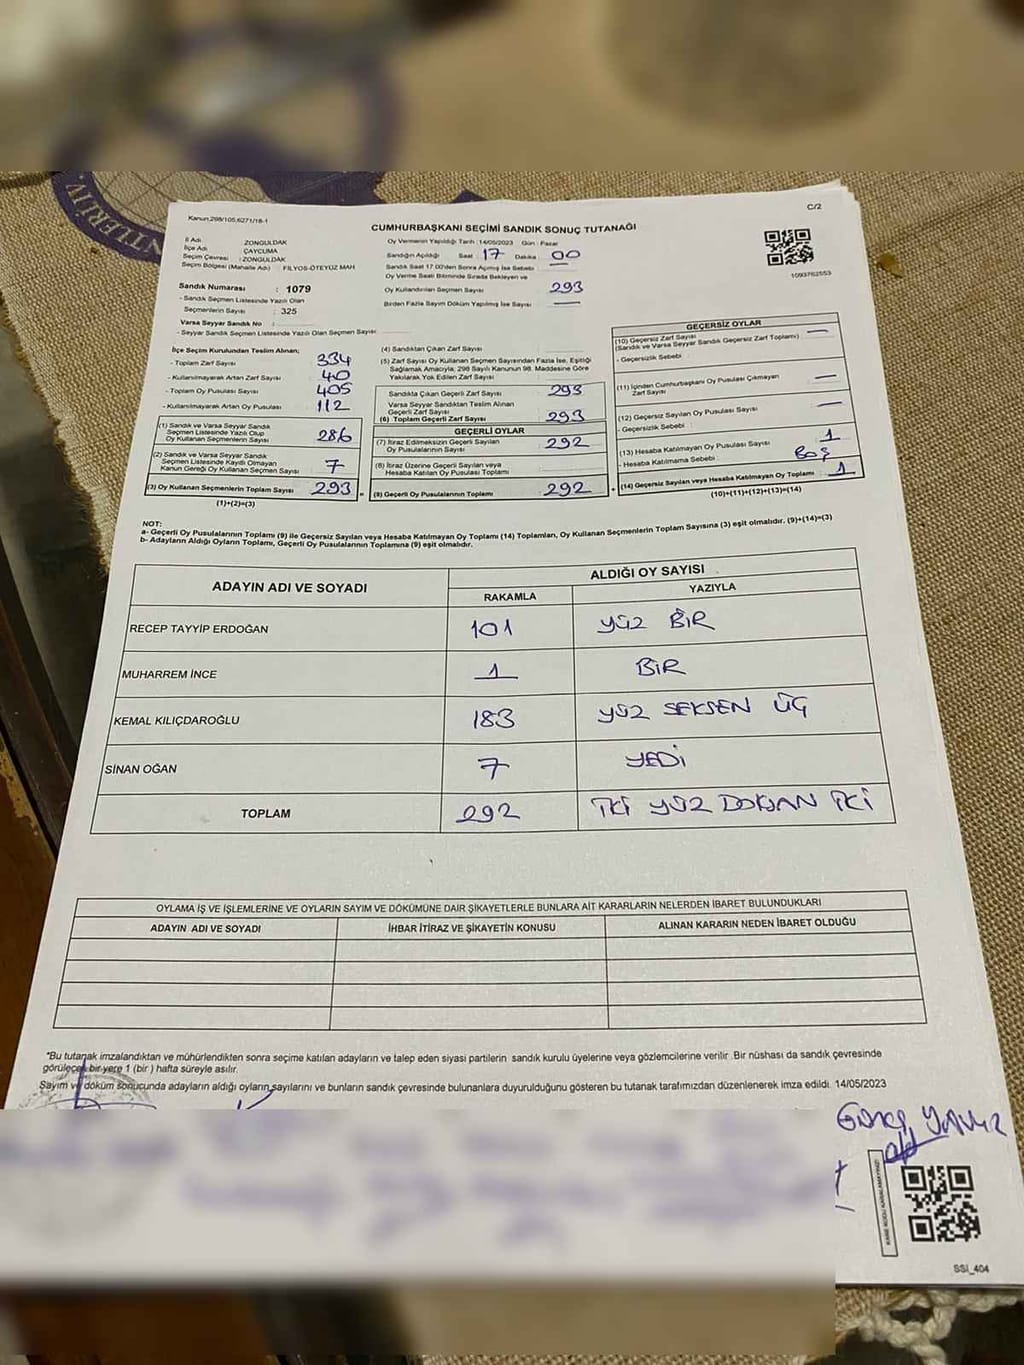 NTLERİ IV.
Kanun,298/105,6271/18-1
C/2
CUMHURBAŞKANI SEÇİMİ SANDIK SONUÇ TUTANAĞI
1093762553
İl Adı ZONGULDAK
İlçe Adı ÇAYCUMA
Seçim Çevresi : ZONGULDAK
Seçim Bölgesi (Mahalle Adı) FİLYOS-ÖTEYÜZ MAH
Sandık Numarası : 1079
- Sandık Seçmen Listesinde Yazılı Olan
Seçmenlerin Sayısı : 325
Varsa Seyyar Sandık No
- Seyyar Sandık Seçmen Listesinde Yazılı Olan Seçmen Sayısı
Oy Vermenin Yapıldığı Tarih : 14/05/2023 Gün : Pazar
Sandığın Açıldığı Saat 17 Dakika 00
Sandık Saat 17 00'den Sonra Açılmış İse Sebebi
Oy Verme Saati Bitiminde Sırada Bekleyen ve
Oy Kullandırılan Seçmen Sayısı 293
Birden Fazla Sayım Döküm Yapılmış İse Sayısı —
İlçe Seçim Kurulundan Teslim Alınan;
- Toplam Zarf Sayısı 334
- Kullanılmayarak Artan Zarf Sayısı 40
- Toplam Oy Pusulası Sayısı 405
- Kullanılmayarak Artan Oy Pusulası 112
(1) Sandık ve Varsa Seyyar Sandık
Seçmen Listesinde Yazılı Olup
Oy Kullanan Seçmenlerin Sayısı 286
(2) Sandık ve Varsa Seyyar Sandık
Seçmen Listesinde Kayıtlı Olmayan
Kanun Gereği Oy Kullanan Seçmen Sayısı 7
(3) Oy Kullanan Seçmenlerin Toplam Sayısı 293 =
(1)+(2)=(3)
(4) Sandıktan Çıkan Zarf Sayısı
(5) Zarf Sayısı Oy Kullanan Seçmen Sayısından Fazla İse, Eşitliği
Sağlamak Amacıyla, 298 Sayılı Kanunun 98. Maddesine Göre
Yakılarak Yok Edilen Zarf Sayısı
Sandıkta Çıkan Geçerli Zarf Sayısı 293
Varsa Seyyar Sandıktan Teslim Alınan
Geçerli Zarf Sayısı
(6) Toplam Geçerli Zarf Sayısı 293
GEÇERLİ OYLAR
(7) İtiraz Edilmeksizin Geçerli Sayılan
Oy Pusulalarının Sayısı 292
(8) İtiraz Üzerine Geçerli Sayılan veya
Hesaba Katılan Oy Pusulası Toplamı
(9) Geçerli Oy Pusulalarının Toplamı 292 +
GEÇERSİZ OYLAR
(10) Geçersiz Zarf Sayısı —
(Sandık ve Varsa Seyyar Sandık Geçersiz Zarf Toplamı)
- Geçersizlik Sebebi
(11) İçinden Cumhurbaşkanı Oy Pusulası Çıkmayan
Zarf Sayısı —
(12) Geçersiz Sayılan Oy Pusulası Sayısı —
- Geçersizlik Sebebi :
(13) Hesaba Katılmayan Oy Pusulası Sayısı 1
- Hesaba Katılmama Sebebi BOŞ
(14) Geçersiz Sayılan veya Hesaba Katılmayan Oy Toplamı 1
(10)+(11)+(12)+(13)=(14)
NOT:
a- Geçerli Oy Pusulalarının Toplamı (9) ile Geçersiz Sayılan veya Hesaba Katılmayan Oy Toplamı (14) Toplamları, Oy Kullanan Seçmenlerin Toplam Sayısına (3) eşit olmalıdır. (9)+(14)=(3)
b- Adayların Aldığı Oyların Toplamı, Geçerli Oy Pusulalarının Toplamına (9) eşit olmalıdır.
ADAYIN ADI VE SOYADI ALDIĞI OY SAYISI
RAKAMLA YAZIYLA
RECEP TAYYİP ERDOĞAN 101 YÜZ BİR
MUHARREM İNCE 1 BİR
KEMAL KILIÇDAROĞLU 183 YÜZ SEKSEN ÜÇ
SİNAN OĞAN 7 YEDİ
TOPLAM 292 İKİ YÜZ DOKSAN İKİ
OYLAMA İŞ VE İŞLEMLERİNE VE OYLARIN SAYIM VE DÖKÜMÜNE DAİR ŞİKAYETLERLE BUNLARA AİT KARARLARIN NELERDEN İBARET BULUNDUKLARI
ADAYIN ADI VE SOYADI İHBAR İTİRAZ VE ŞİKAYETİN KONUSU ALINAN KARARIN NEDEN İBARET OLDUĞU
*Bu tutanak imzalandıktan ve mühürlendikten sonra seçime katılan adayların ve talep eden siyasi partilerin sandık kurulu üyelerine veya gözlemcilerine verilir .Bir nüshası da sandık çevresinde
görülecek bir yere 1 (bir ) hafta süreyle asılır.
Sayım ve döküm sonucunda adayların aldığı oyların sayılarını ve bunların sandık çevresinde bulunanlara duyurulduğunu gösteren bu tutanak tarafımızdan düzenlenerek imza edildi. 14/05/2023
YAVUZ
KARE KODU KARALAMAYINIZ!
SSİ_404